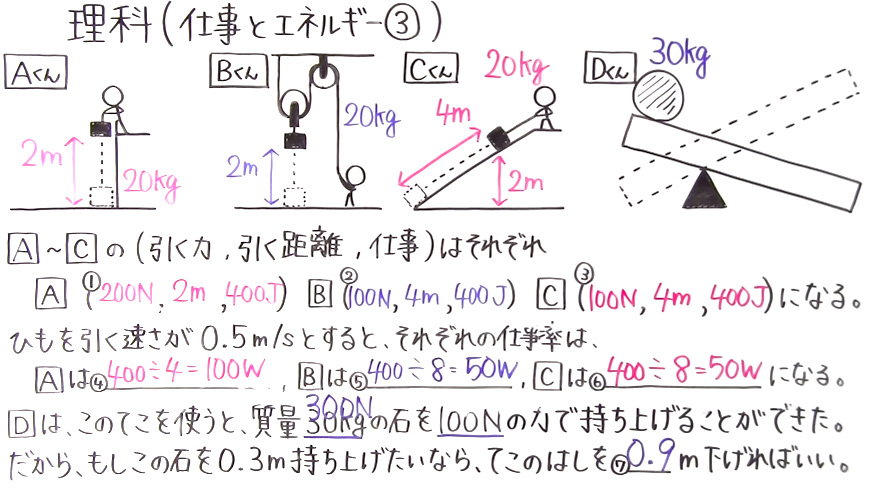 理科(仕事とエネルギー③)
Aくん
2m
20kg
Bくん
2m
20kg
Cくん
20kg
4m
2m
Dくん
30kg
A~Cの(引く力,引く距離,仕事)はそれぞれ
A (①200N, 2m, 400J) B (②100N, 4m, 400J) C (③100N, 4m, 400J)になる。
ひもを引く速さが0.5m/sとすると、それぞれの仕事率は、
Aは④400÷4=100W, Bは⑤400÷8=50W, Cは⑥400÷8=50Wになる。
300N
Dは、このてこを使うと、質量30kgの石を100Nの力で持ち上げることができた。
だから、もしこの石を0.3m持ち上げたいなら、てこのはしを⑦0.9m下げればいい。